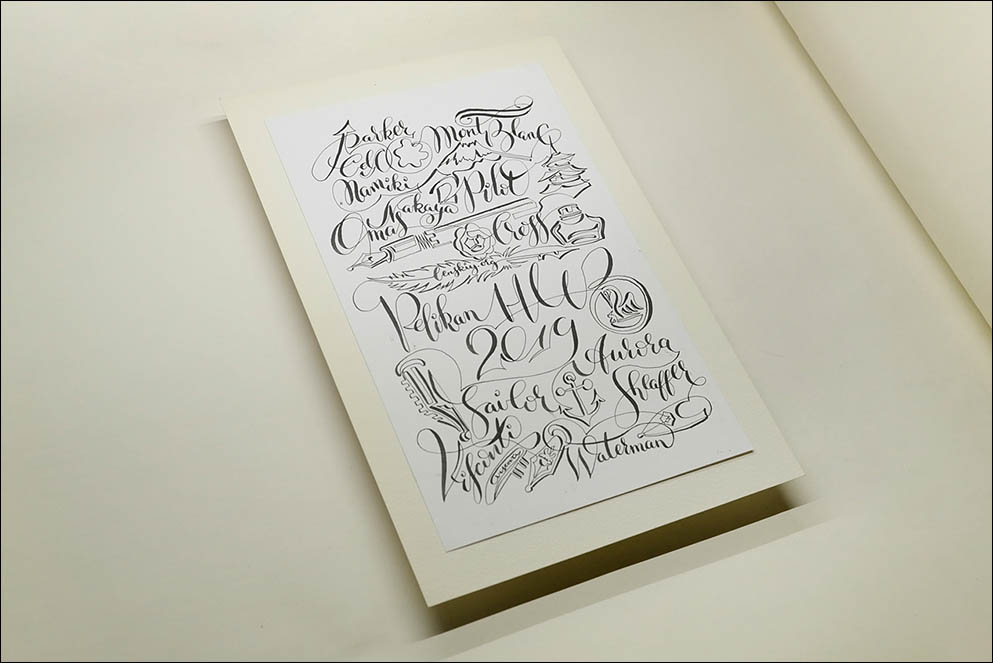 Parker MontBlanc
Namiki
Pilot
Omas Nakaya
Cross
lenskiy.org
Pelikan HW
2019
Aurora
Sailor Sheaffer
Visconti
Waterman